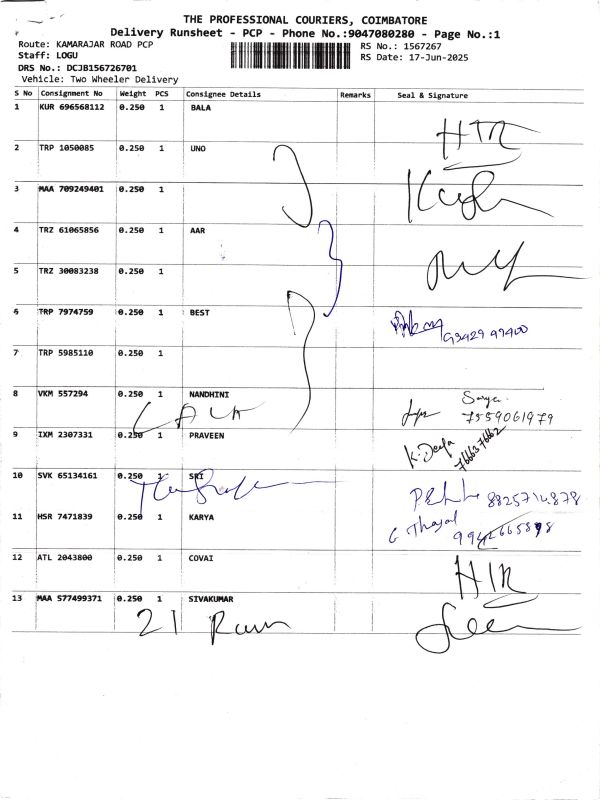 THE PROFESSIONAL COURIERS, COIMBATORE
Delivery Runsheet - PCP - Phone No.:9047080280 - Page No.:1
Route: KAMARAJAR ROAD PCP
Staff: LOGU
DRS No.: DCJB156726701
Vehicle: Two Wheeler Delivery
RS No.: 1567267
RS Date: 17-Jun-2025
S No Consignment No Weight PCS Consignee Details Remarks Seal & Signature
1 KUR 696568112 0.250 1 BALA
2 TRP 1050085 0.250 1 UNO
3 MAA 709249401 0.250 1
4 TRZ 61065856 0.250 1 AAR
5 TRZ 30083238 0.250 1
6 TRP 7974759 0.250 1 BEST
7 TRP 5985110 0.250 1
8 VKM 557294 0.250 1 NANDHINI
Surya
7559061979
9 IXM 2307331 0.250 1 PRAVEEN
K. Deepa
10 SVK 65134161 0.250 1 SRI
11 HSR 7471839 0.250 1 KARYA
G Thayal
12 ATL 2043800 0.250 1 COVAI
13 MAA 577499371 0.250 1 SIVAKUMAR
21